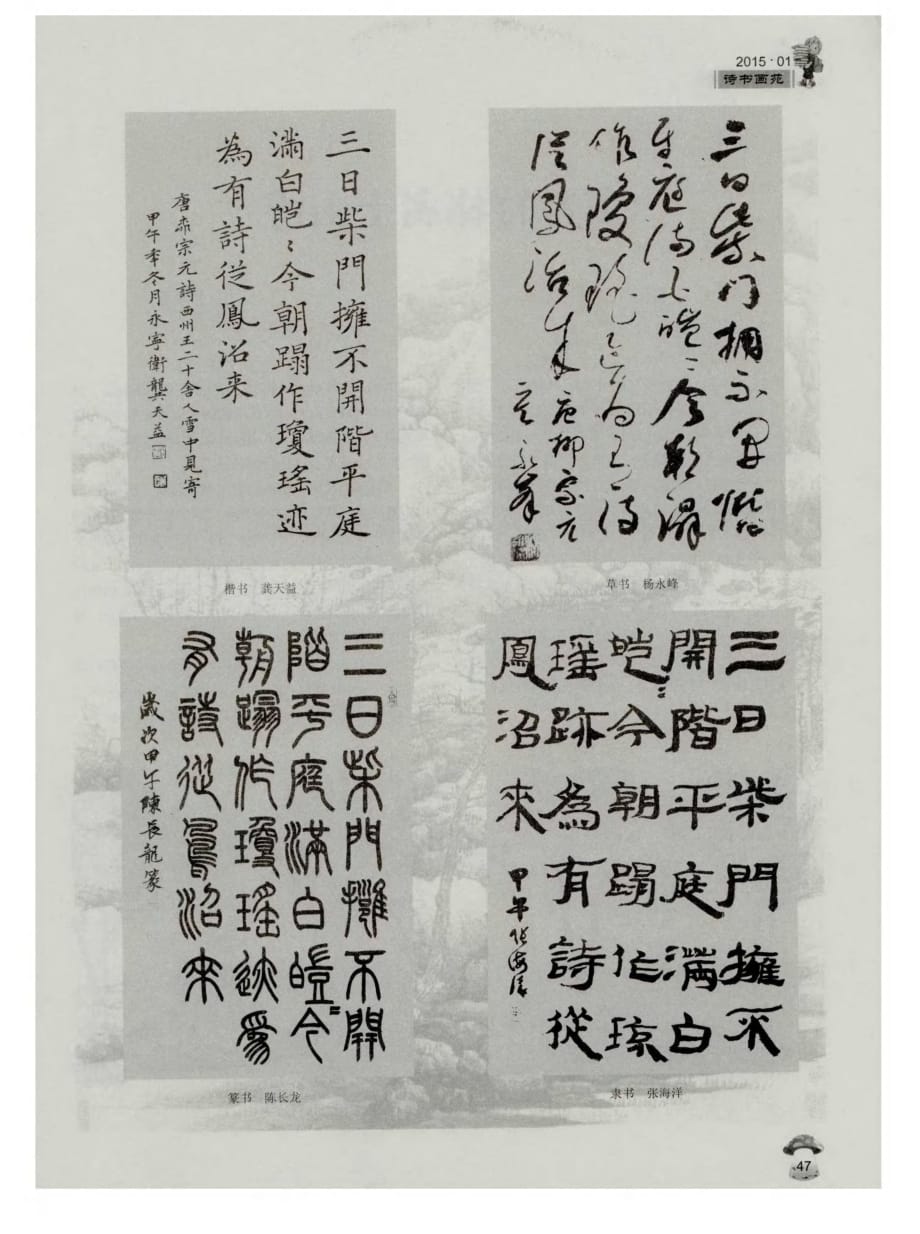 2015·01
诗书画苑
三日柴門擁不開階平庭
滿白皚〻今朝蹋作瓊瑤迹
為有詩從鳳沼来
唐 宗元詩西州王二十舍人雪中見寄
甲午季冬月永寧衛龔天益
楷书 龚天益
三日柴门擁不开階
平庭满白皚〻今朝蹋
作瓊瑶迹为有诗
從鳳沼来 柳宗元
永峰
草书 杨永峰
三日柴門擁不開
階平庭滿白皚〻今
朝蹋作瓊瑤迹為
有詩從鳳沼来
歲次甲午陳長龍篆
篆书 陈长龙
三日柴門擁不
開階平庭滿白
皚〻今朝蹋作琼
瑶跡為有詩從
鳳沼來
甲午 張海洋
隶书 张海洋
47